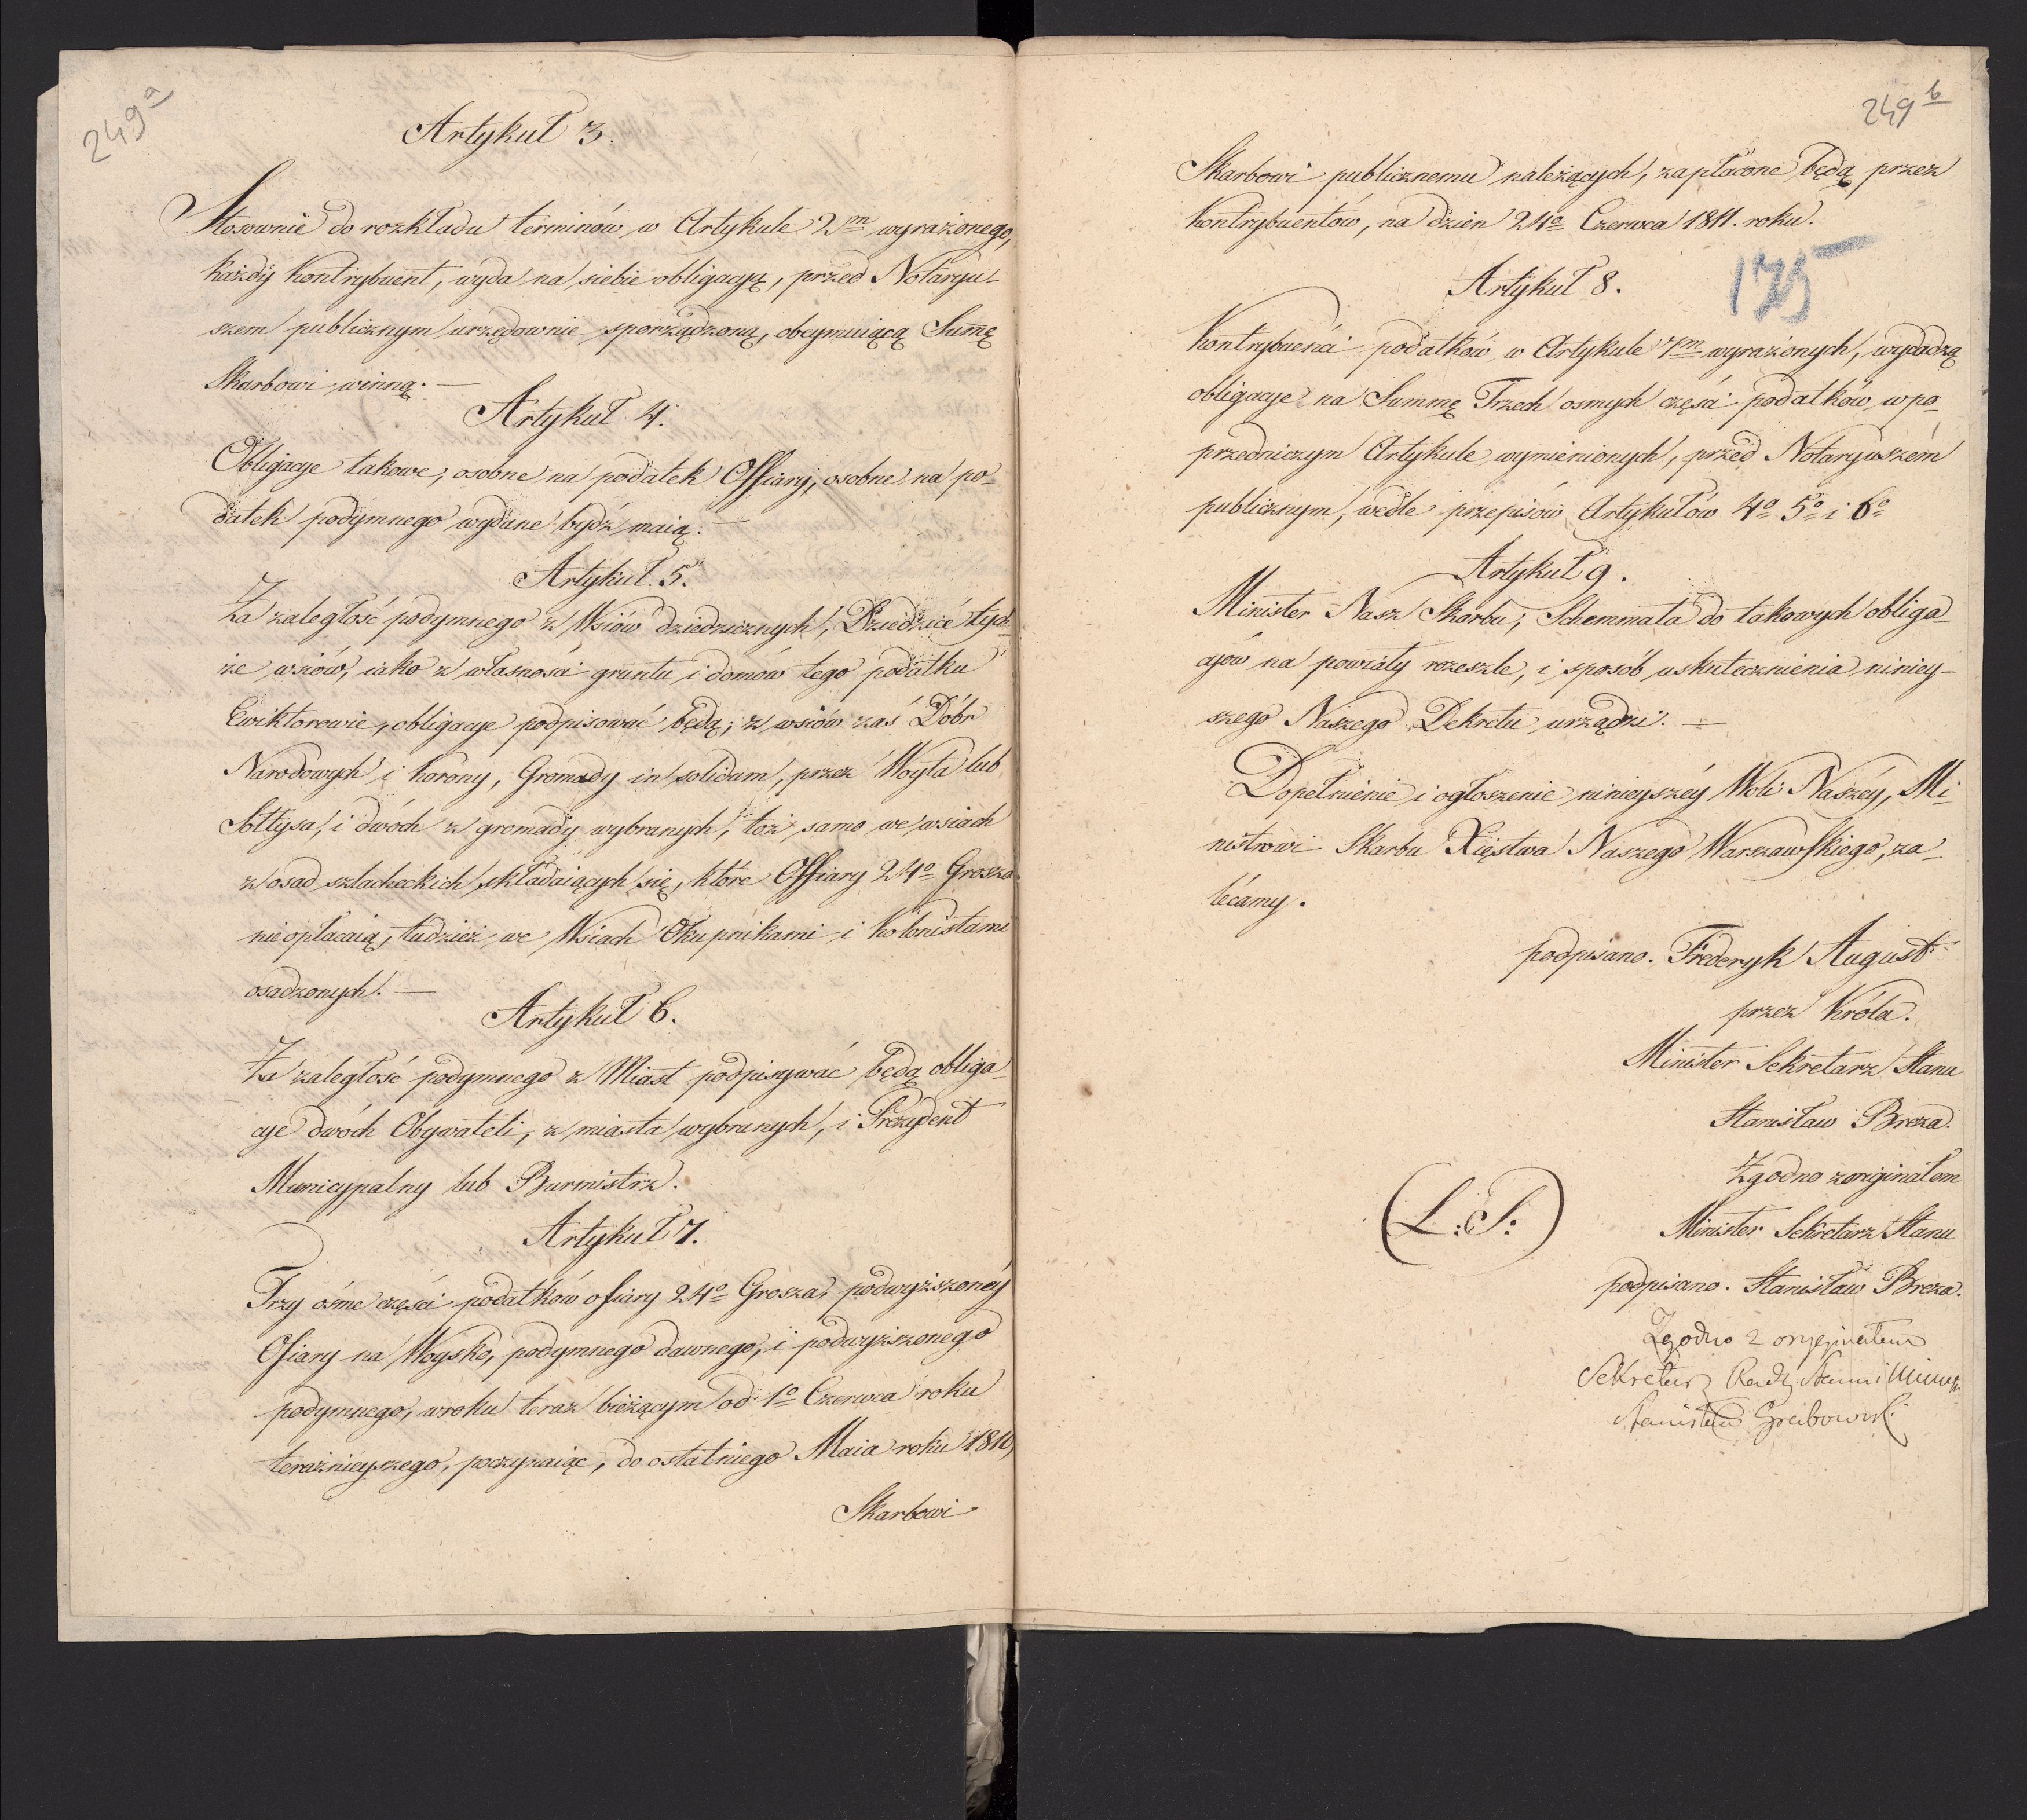 249a
Artykuł 3.
Stosownie do rozkładu terminów w Artykule 2m wyrażonego,
każdy Kontrybuent, wyda na siebie obligacyą, przed Notaryu-
szem publicznym urzędownie sporządzoną, obeymuiącą Summę
Skarbowi winną. —
Artykuł 4.
Obligacye takowe, osobne na podatek Offiary, osobne na po-
datek podymnego wydane bydź maią. —
Artykuł 5.
Za zaległość podymnego z Wsiów dziedzicznych, Dziedzice tych-
że wsiów, iako z własności gruntu i domów tego podatku
Ewiktorowie, obligacye podpisować będą; z wsiów zaś Dóbr
Narodowych i Korony, Gromady in solidum, przez Woyta lub
Sołtysa, i dwóch z gromady wybranych, toż samo we wsiach
z osad szlacheckich składaiących się, które Offiary 24o Grosza
nieopłacaią, tudzież we Wsiach Okupnikami i Kolonistami
osadzonych. —
Artykuł 6.
Za zaległość podymnego z Miast podpisywać będą obliga-
cye dwóch Obywateli, z miasta wybranych, i Prezydent
Municypalny lub Burmistrz.
Artykuł 7.
Trzy ósme części podatków ofiary 24o Grosza, podwyższoney
Ofiary na Woysko, podymnego dawnego, i podwyższonego
podymnego, w roku teraz bieżącym od 1o Czerwca roku
teraźnieyszego, poczynaiąc, do ostatniego Maia roku 1811,
Skarbowi
249b
Skarbowi publicznemu należących, zapłacone będą przez
Kontrybuentów, na dzien 24o Czerwca 1811. roku.
175
Artykuł 8.
Kontrybuenci podatków w Artykule 7m wyrażonych, wydadzą
obligacye na Summę Trzech osmych części podatków w po-
przedniczym Artykule wymienionych, przed Notaryuszem
publicznym, wedle przepisów Artykułów 4o 5o i 6o
Artykuł 9.
Minister Nasz Skarbu, Schemmata do takowych obliga-
cyow na powiaty rozeszle, i sposób uskutecznienia niniey-
szego Naszego Dekretu urządzi. —
Dopełnienie i ogłoszenie ninieyszéy Woli Naszéy, Mi-
nistrowi Skarbu Xięstwa Naszego Warszawskiego, za-
lecamy.
podpisano. Frederyk August
przez Króla.
Minister Sekretarz Stanu
Stanisław Breza.
Zgodno z originałem
(L: S:)
Minister Sekretarz Stanu
podpisano. Stanisław Breza.
Zgodno z oryginałem
Sekretarz Rady Stanu i
Stanisław Grabowski